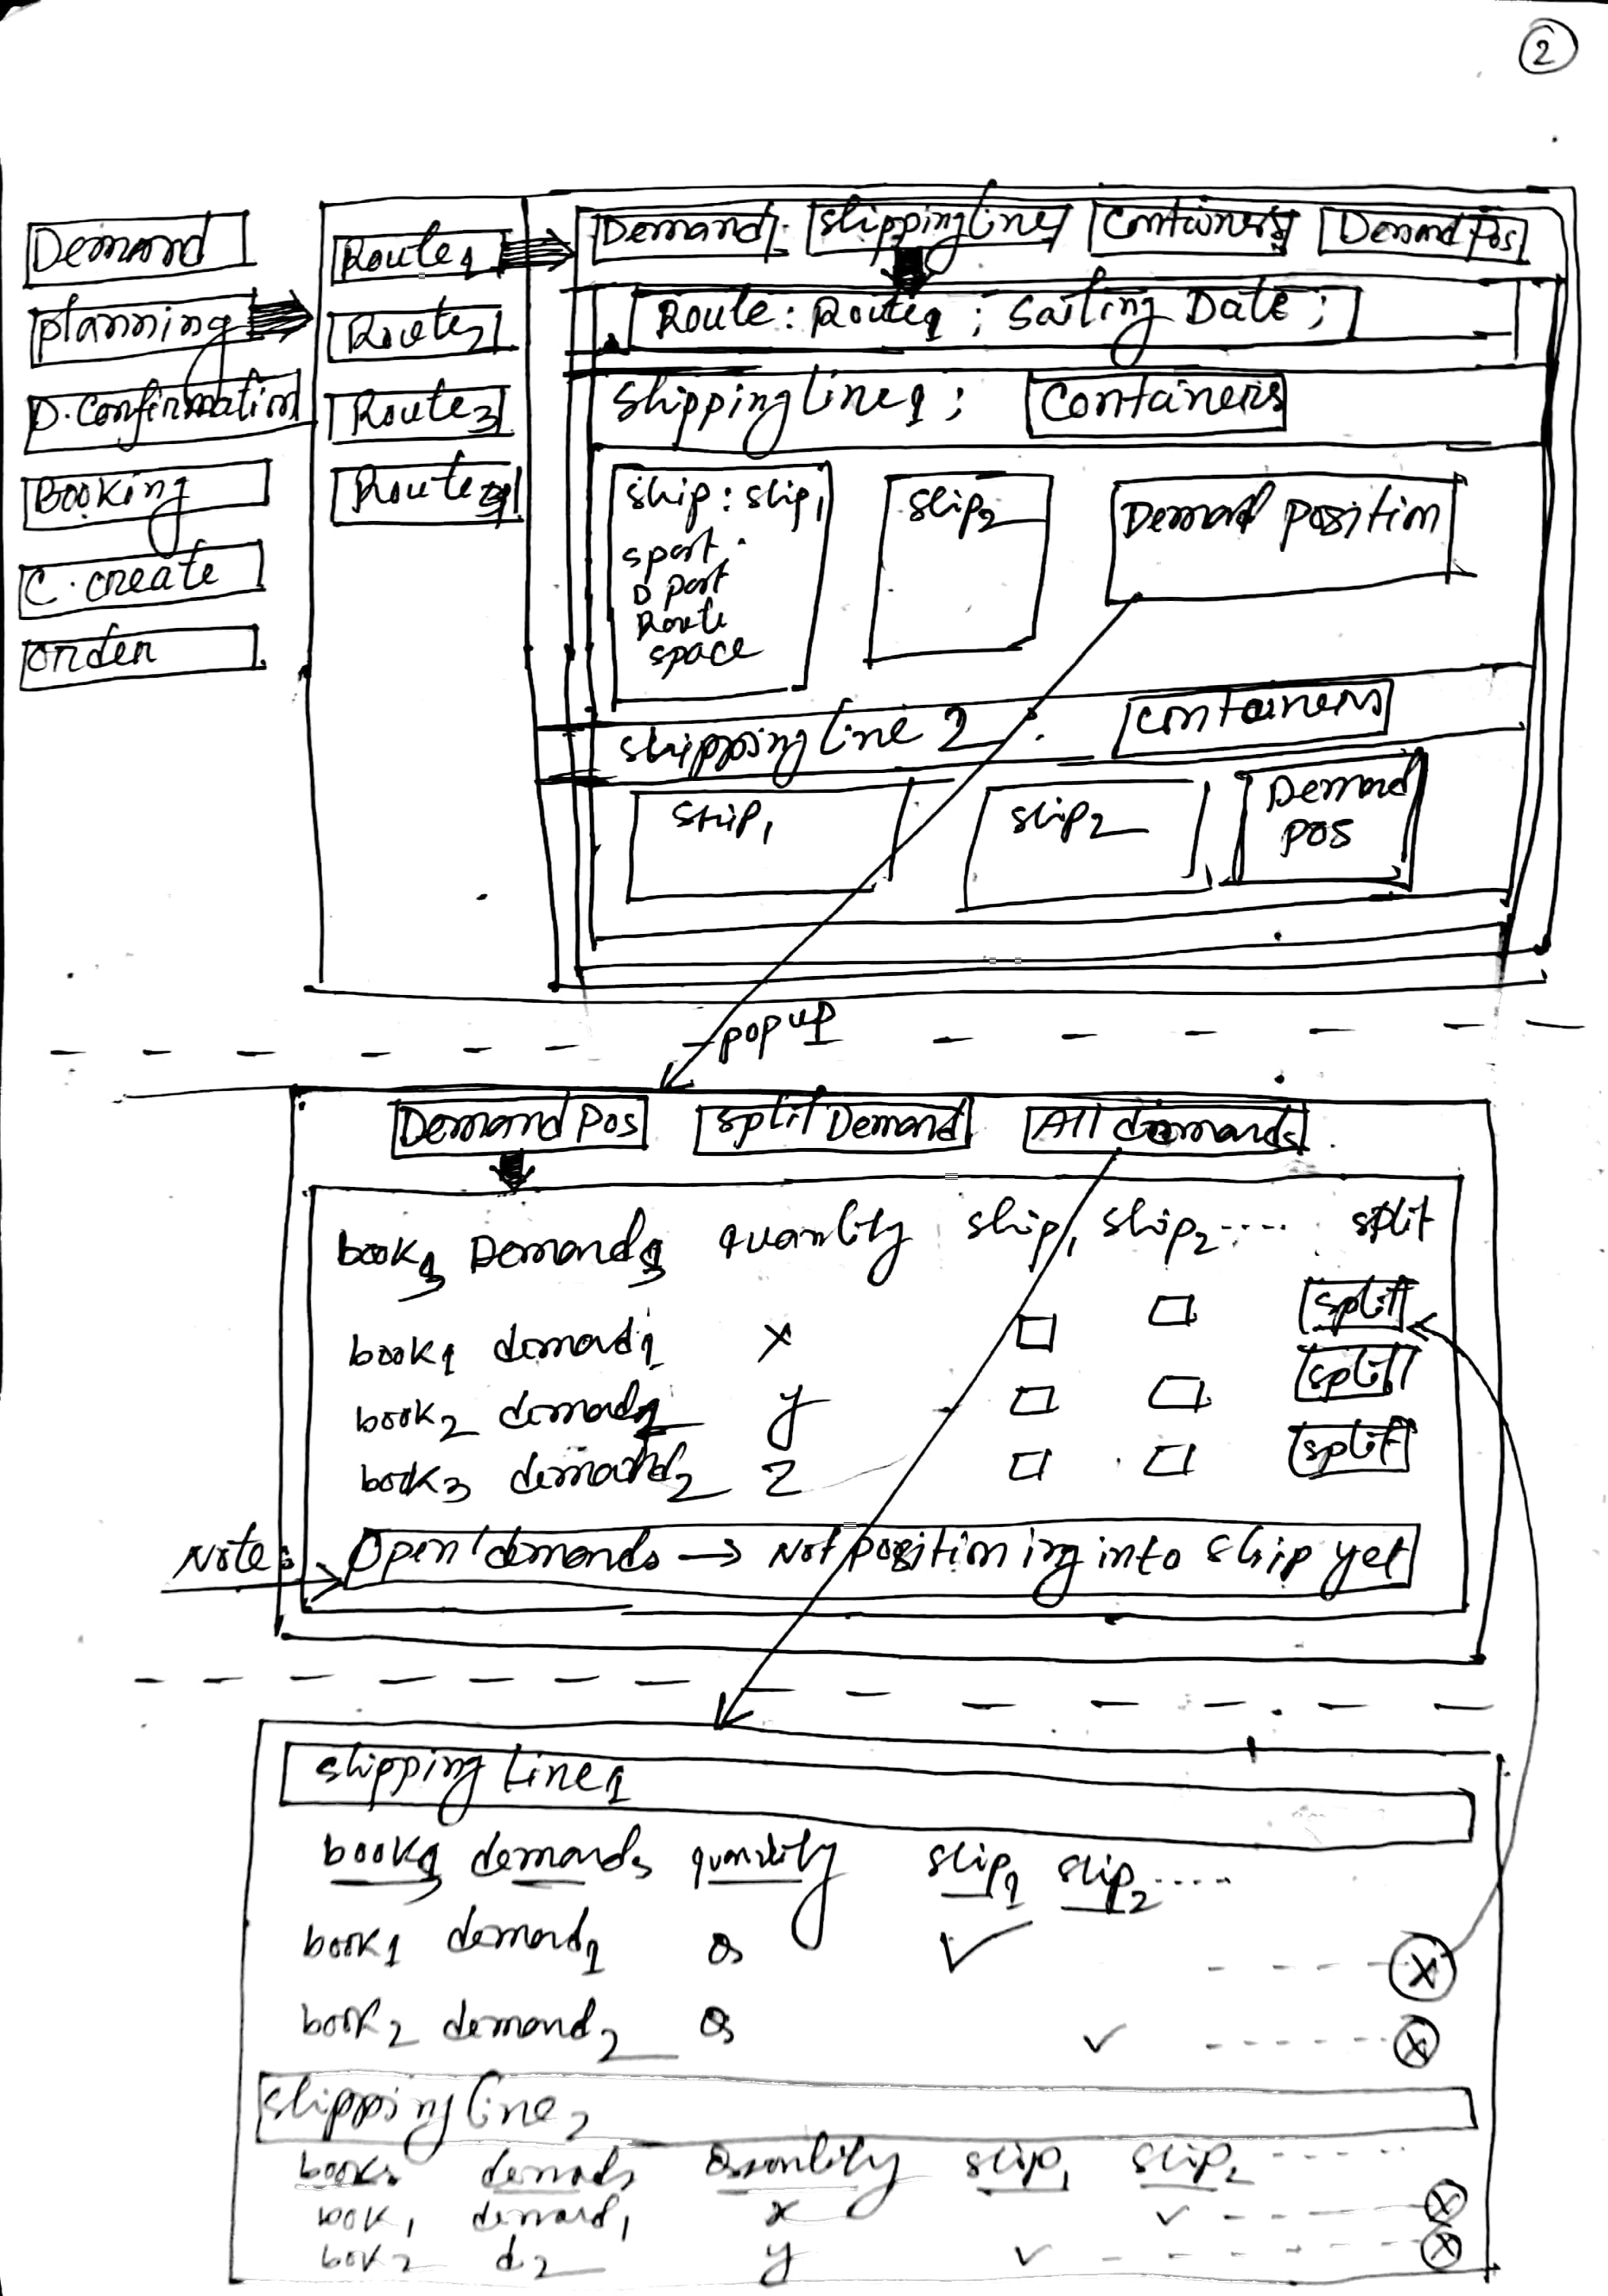 2
Demand
planning
D. Confirmation
Booking
C. create
order
Route1
Route2
Route3
Route4
Demand shippingline containers Demand Pos
Route: Route1 ; Sailing Date ;
Shipping line1 ; Containers
ship: ship1
sport :
D port
Route
space
ship2
Demand position
shipping line 2 : containers
ship1 ship2 Demand
pos
pop up
Demand Pos split Demand All demands
books Demands quantity ship1 ship2 .... split
book1 demand1 x split
book2 demand2 y split
book3 demand2 z split
Note: Open demands → Not positioning into ship yet
shipping Line1
books demands quantity ship1 ship2 ....
book1 demand1 Q ✓ - - - - x
book2 demand2 Q ✓ - - - - x
shipping line2
books demands Quantity ship1 ship2 - - - -
book1 demand1 x ✓ - - - - x
book2 d2 y ✓ - - - - x